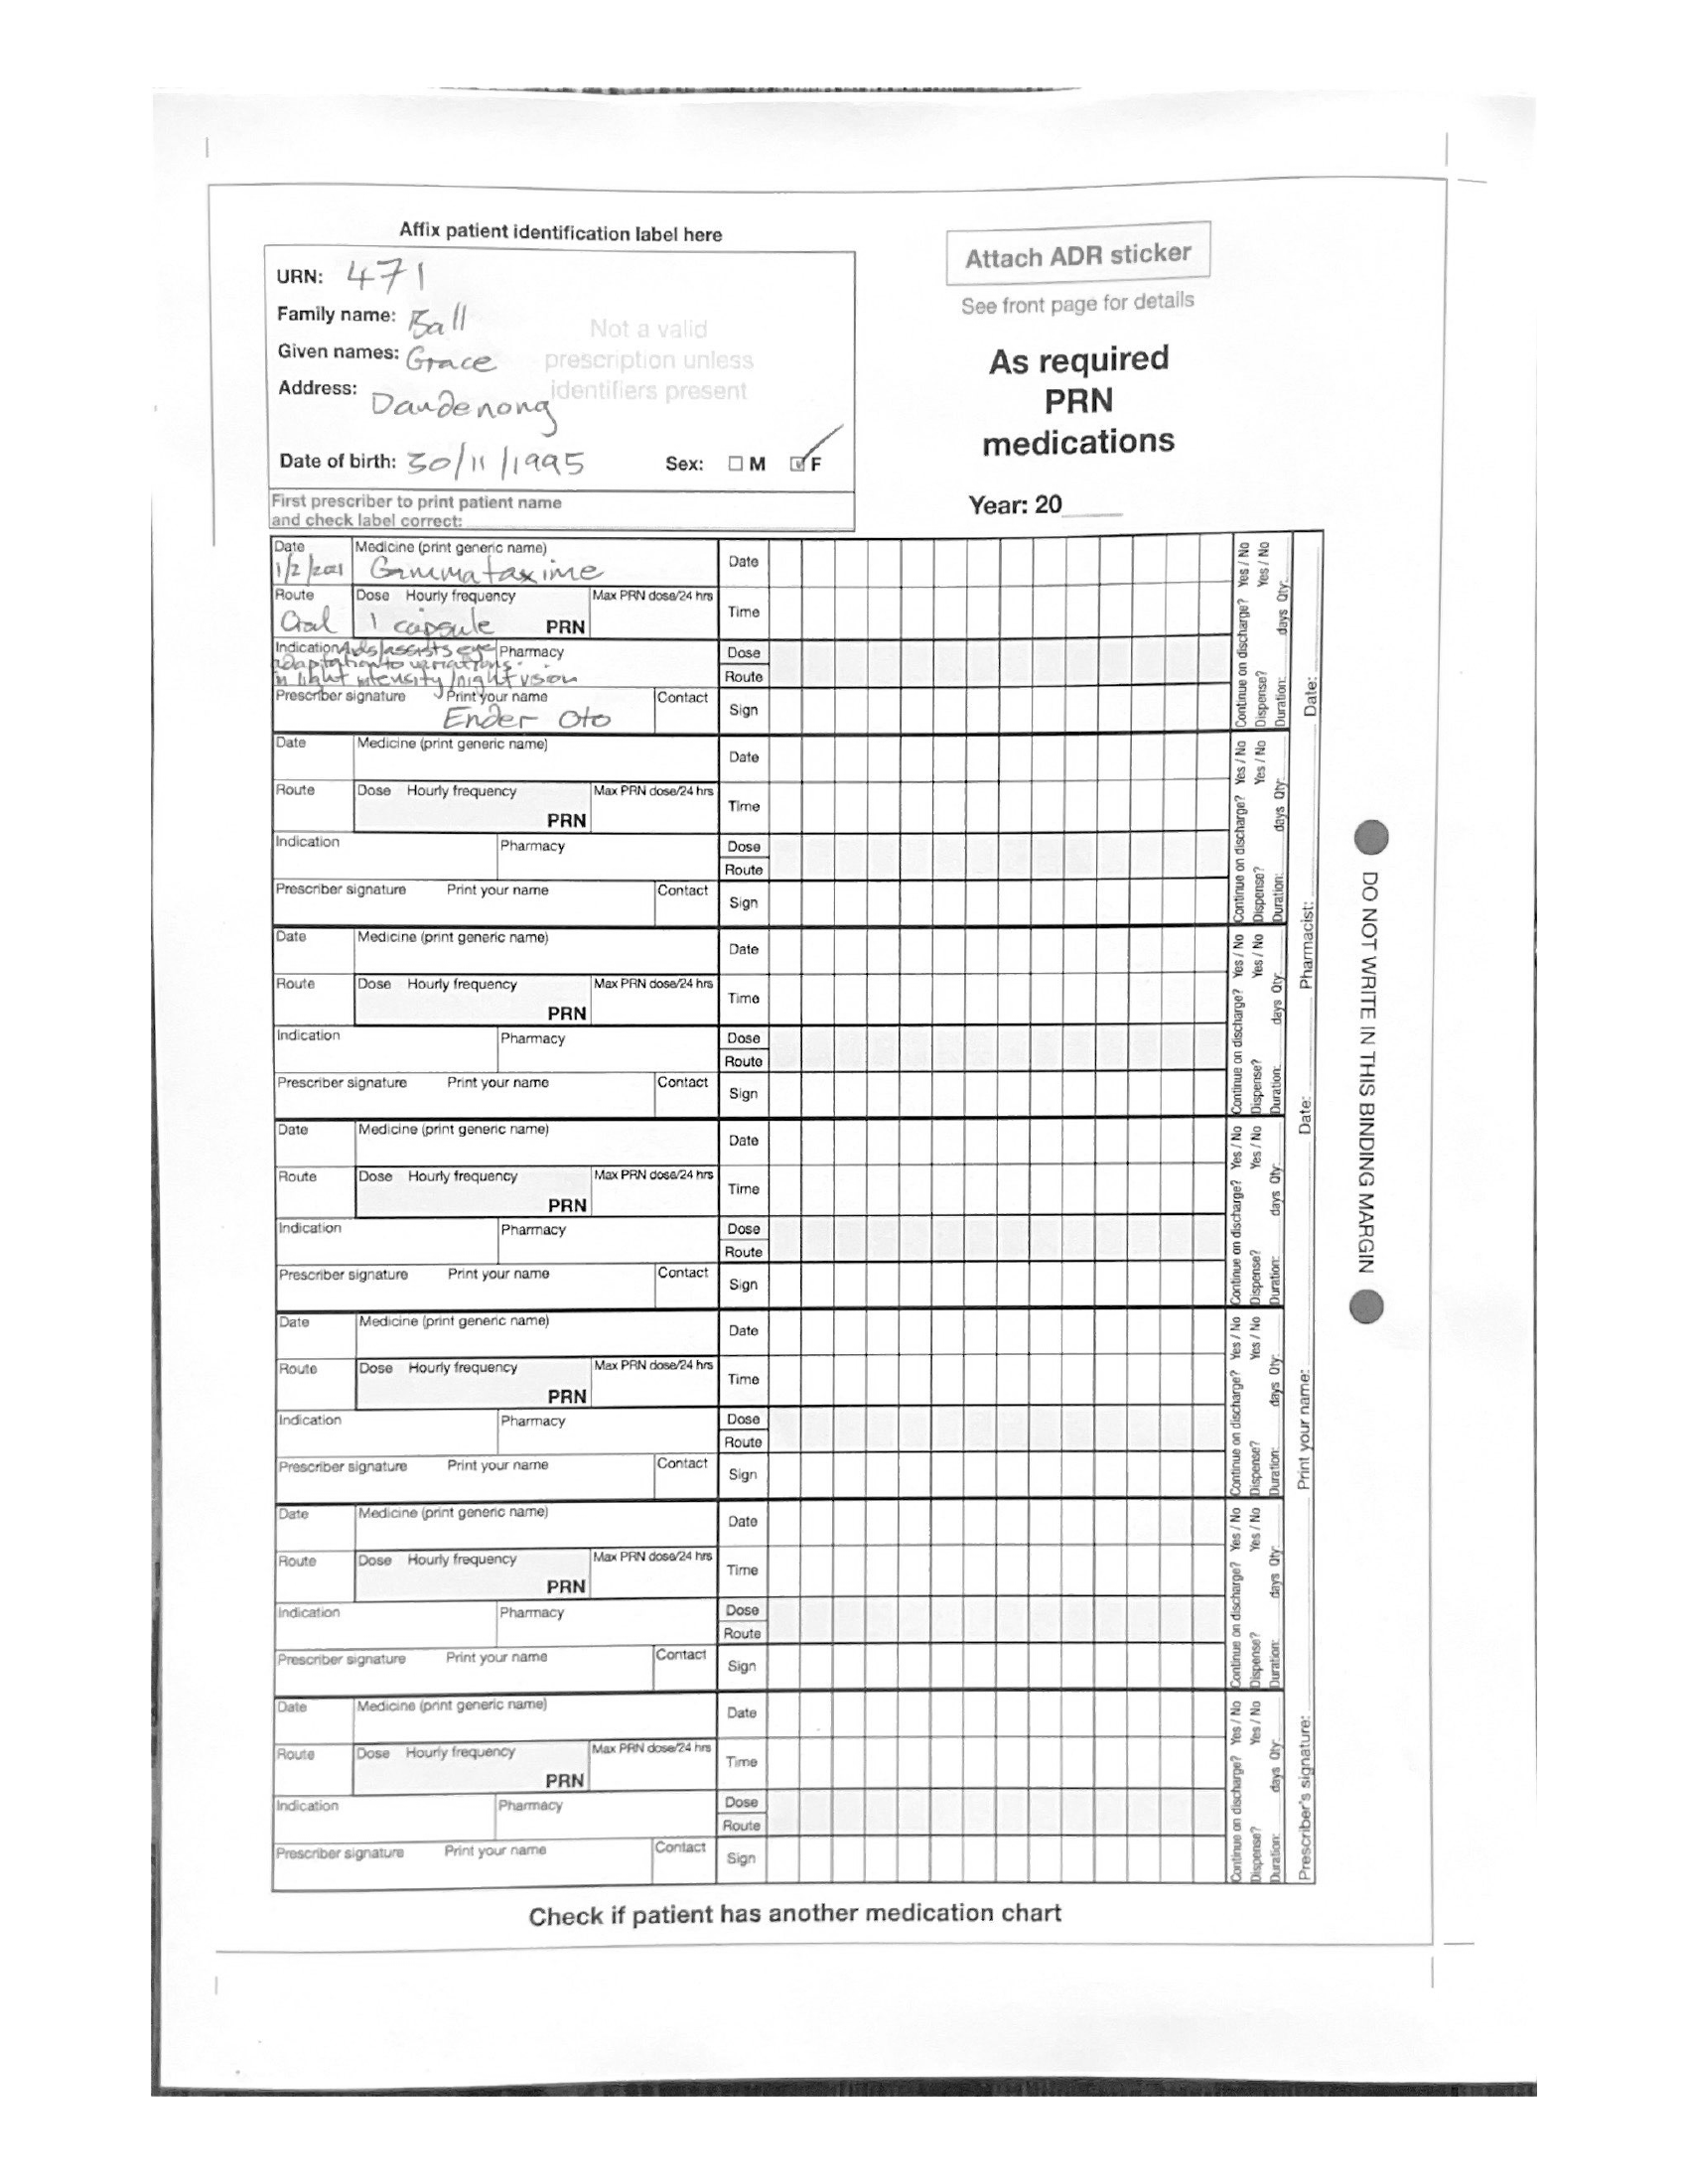 Affix patient identification label here
Attach ADR sticker
See front page for details
URN: 471
Family name: Ball
Given names: Grace
Address: Dandenong
Not a valid
prescription unless
identifiers present
Date of birth: 30/11/1995 Sex: M F
First prescriber to print patient name
and check label correct:
As required
PRN
medications
Year: 20
Date Medicine (print generic name) Date
1/2/2021
Route Dose Hourly frequency Max PRN dose/24 hrs Time
Oral 1 capsule PRN
Indication Aids/assists eye Pharmacy Dose
adaptation to variations Route
in light intensity/night vision
Prescriber signature Print your name Contact Sign
Ender Oto
Continue on discharge? Yes / No
Dispense? Yes / No
Duration: days Qty:
Date Medicine (print generic name) Date
Route Dose Hourly frequency Max PRN dose/24 hrs Time
PRN
Indication Pharmacy Dose
Route
Prescriber signature Print your name Contact Sign
Continue on discharge? Yes / No
Dispense? Yes / No
Duration: days Qty:
Date Medicine (print generic name) Date
Route Dose Hourly frequency Max PRN dose/24 hrs Time
PRN
Indication Pharmacy Dose
Route
Prescriber signature Print your name Contact Sign
Continue on discharge? Yes / No
Dispense? Yes / No
Duration: days Qty:
Date Medicine (print generic name) Date
Route Dose Hourly frequency Max PRN dose/24 hrs Time
PRN
Indication Pharmacy Dose
Route
Prescriber signature Print your name Contact Sign
Continue on discharge? Yes / No
Dispense? Yes / No
Duration: days Qty:
Date Medicine (print generic name) Date
Route Dose Hourly frequency Max PRN dose/24 hrs Time
PRN
Indication Pharmacy Dose
Route
Prescriber signature Print your name Contact Sign
Continue on discharge? Yes / No
Dispense? Yes / No
Duration: days Qty:
Date Medicine (print generic name) Date
Route Dose Hourly frequency Max PRN dose/24 hrs Time
PRN
Indication Pharmacy Dose
Route
Prescriber signature Print your name Contact Sign
Continue on discharge? Yes / No
Dispense? Yes / No
Duration: days Qty:
Date Medicine (print generic name) Date
Route Dose Hourly frequency Max PRN dose/24 hrs Time
PRN
Indication Pharmacy Dose
Route
Prescriber signature Print your name Contact Sign
Continue on discharge? Yes / No
Dispense? Yes / No
Duration: days Qty:
Prescriber's signature: Print your name: Date: Pharmacist: Date:
DO NOT WRITE IN THIS BINDING MARGIN
Check if patient has another medication chart